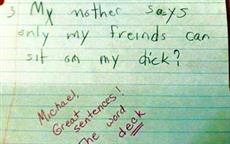 3 My mother says
only my freinds can
sit on my dick?
Michael,
Great
sentences!
The word
deck